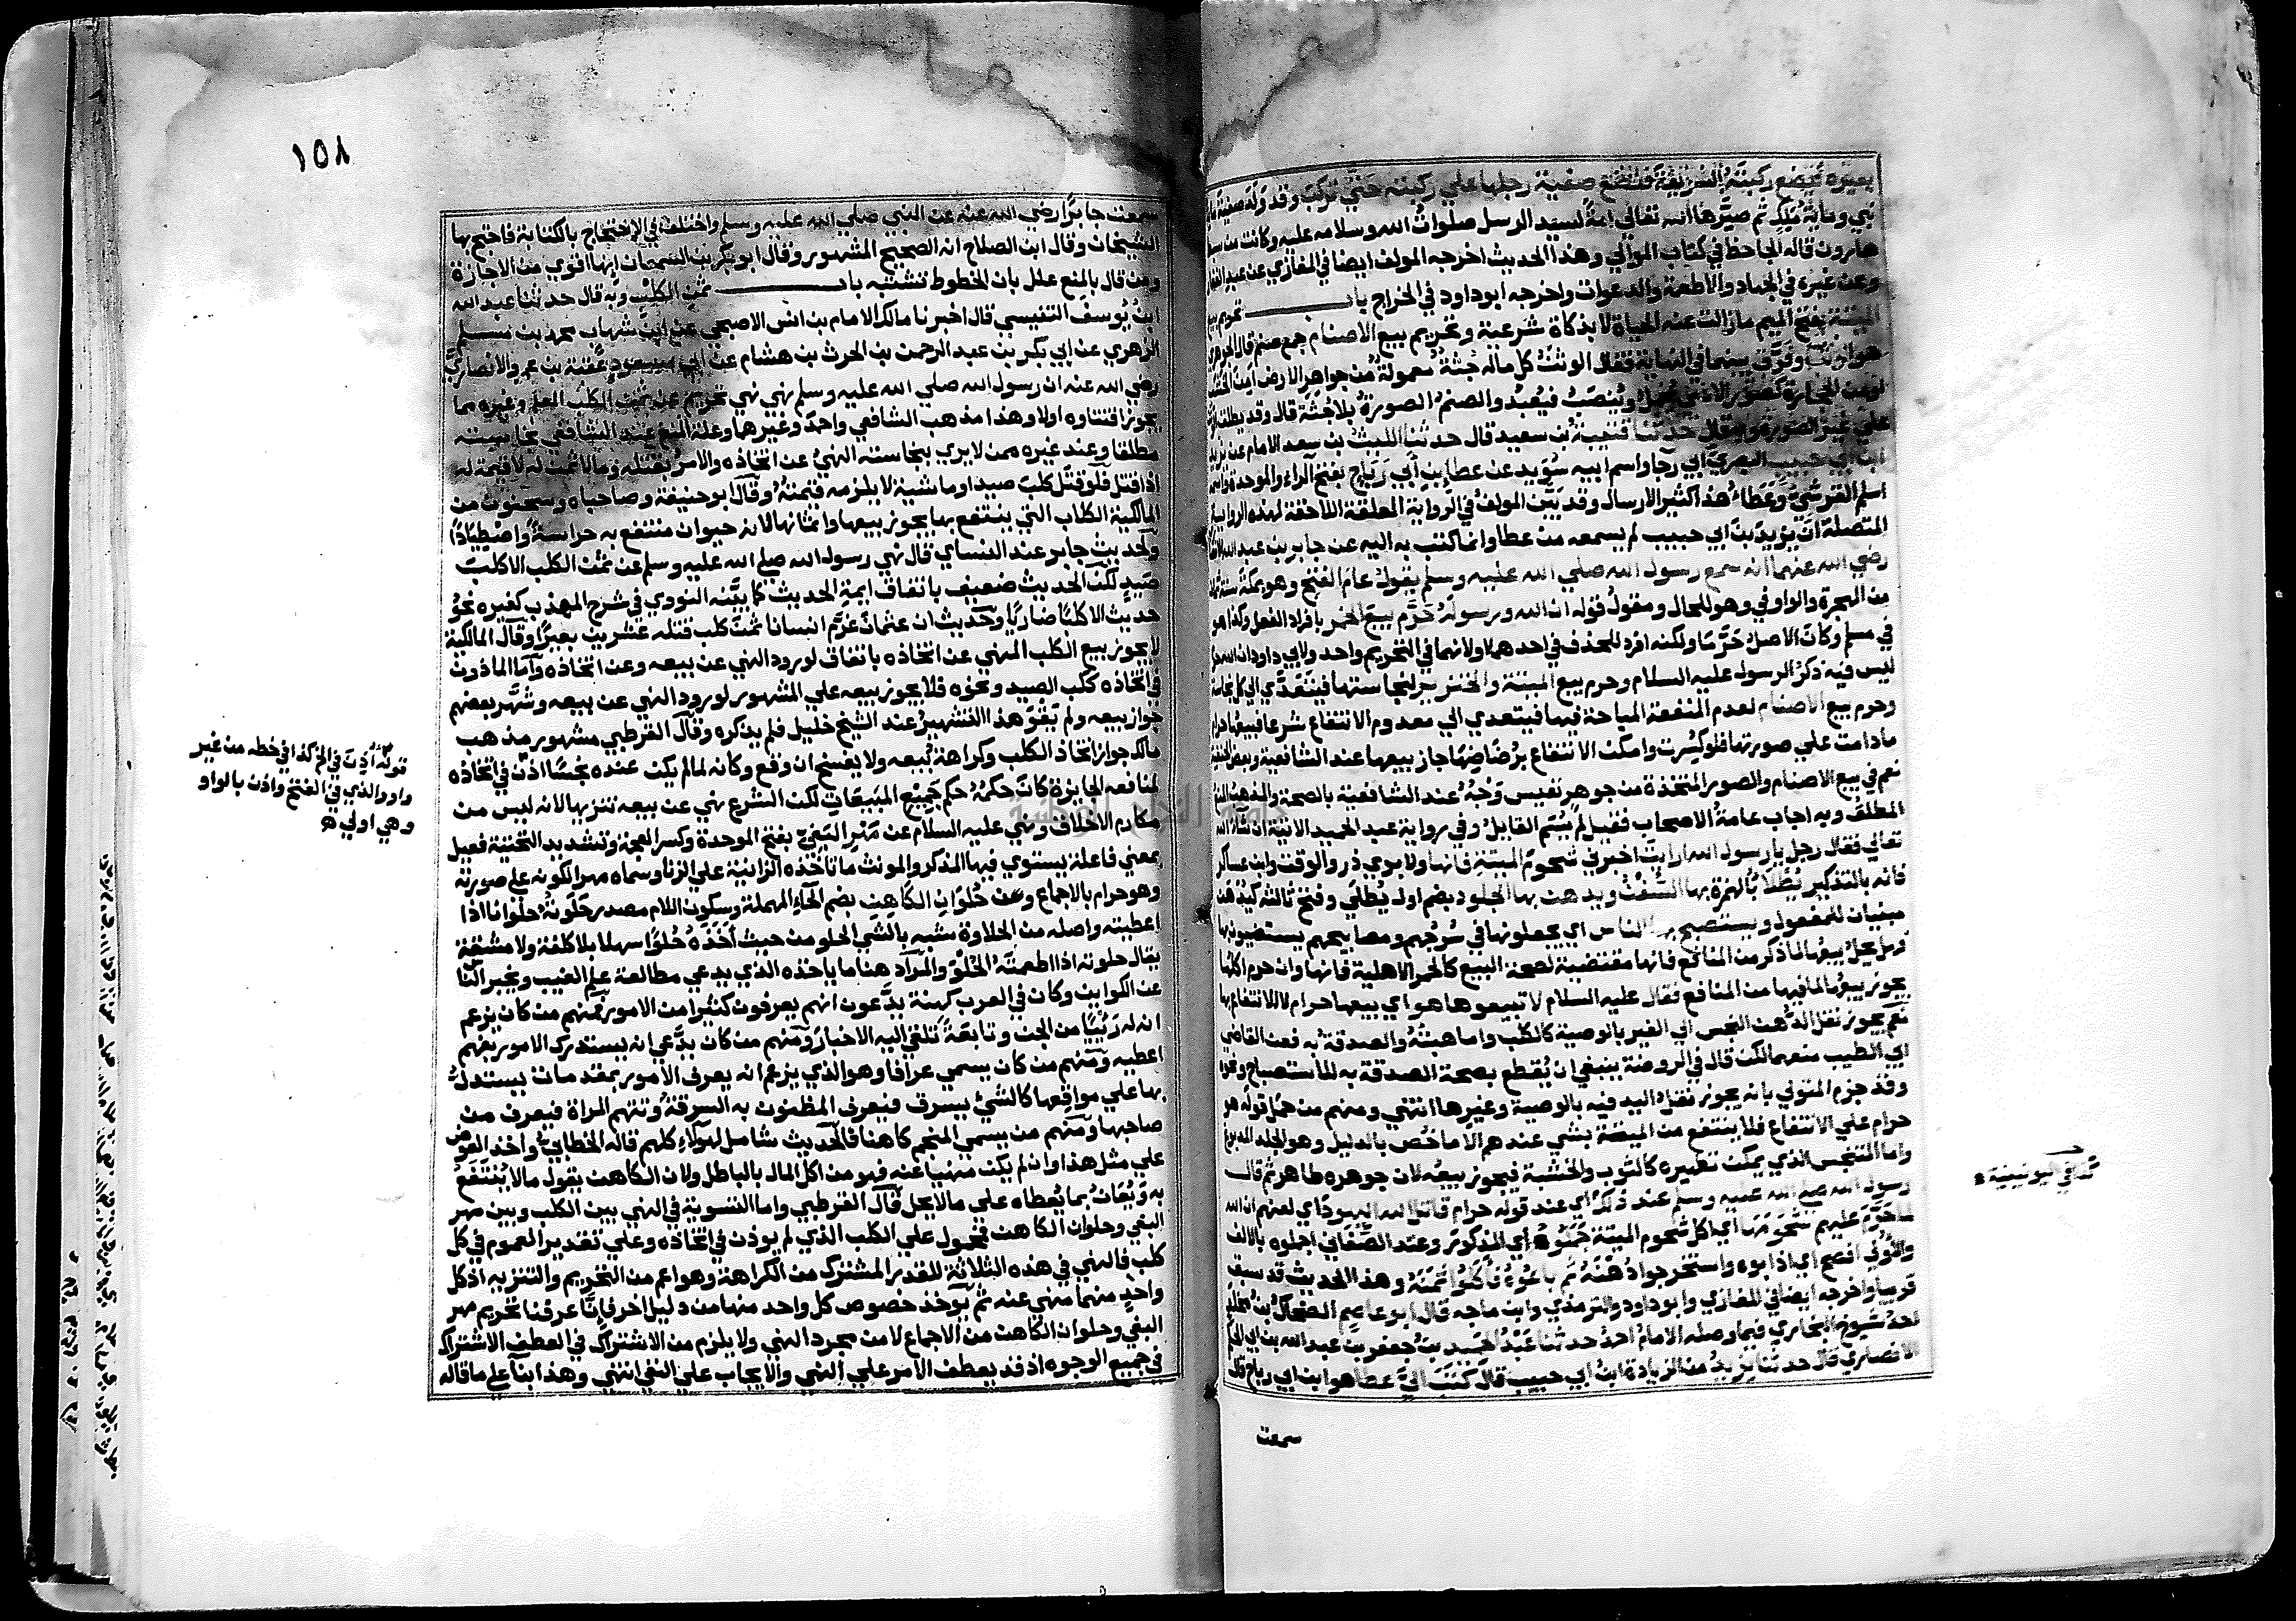 بعيره فيضع ركبته الشريفة فتضع صفية رجلها علي ركبته حتي تركب وقد ولد صفية
نبي ومأية مُلِك ثم صيّرها الله تعالي امةً لسيد الرسل صلوات الله وسلامه عليه وكانت من
هارون قاله الجاحظ في كتاب الموالي وهذا الحديث اخرجه المولف ايضا في المغازي عن عبد
وعن غيره في الجهاد والاطعمة والدعوات واخرجه ابو داود في الخراج باب تحريم بيع
الميتة بفتح الميم ما زالت عنه الحياة لا بذكاة شرعية وتحريم بيع الاصنام جمع صنم قال الجوهري
هو الوثن وفرّق بينهما في النهاية فقال الوثن كل ماله جثةٌ معمولةٌ من جواهر الارض او من الخشب
او من الحجارة كصورة الادمي تُعمل وتُنصب فتُعبد والصنم الصورة بلا جثة قال وقد يطلق
علي غير الصورة وبه قال حدثنا قتيبة بن سعيد قال حدثنا الليث بن سعد الامام عن يزيد
ابن ابي حبيب البصري ابي رجا واسم ابيه سُويد عن عطا بن أبي رباح بفتح الراء والموحدة واسمه
اسلم القرشي وعطاءٌ هذا كثير الارسال وقد بيّن المولف في الرواية المعلقة اللاحقة لهذه الرواية
المتصلة أنّ يزيد بن ابي حبيب لم يسمعه من عطا وانما كتب به اليه عن جابر بن عبد الله
رضي الله عنهما انه سمع رسول الله صلي الله عليه وسلم يقول عام الفتح وهو بمكة سنة ثمان
من الهجرة والواو في وهو للحال ومقول قوله ان الله ورسوله حرّم بيع الخمر بافراد الفعل وكذا هو
في مسلم وكان الاصل حَرّما ولكنه افرد للحذف في احدهما او لانهما في التحريم واحد ولابي داود ان الله حرم
ليس فيه ذكرُ الرسول عليه السلام وحرم بيع الميتة والخنزير لنجاستها فيتعدّي الي كل نجاسة
وحرم بيع الاصنام لعدم المنفعة المباحة فيها فيتعدي الي معدوم الانتفاع شرعا فبيعها حرام
مادامت علي صورتها فلو كُسِرت وامكن الانتفاع برُضاضِها جاز بيعها عند الشافعية وبعض الحنفية
نعم في بيع الاصنام والصور المتخذة من جوهر نفيس وَجْهٌ عند الشافعية بالصحة والمذهب المنع
المطلق وبه اجاب عامة الاصحاب فقيل لم يُسَمّ القايل وفي رواية عبد الحميد الاتية ان شاء الله
تعالي فقال رجل يارسول الله ارايت اخبرني شحوم الميتة فانها ولابوي ذر والوقت وابن عساكر
فانه بالتذكير يُطلا بالهمزة بها السُّفُن ويدهن بها الجلود بضم اول يُطلَي وفتح ثالثه كيُدهن
مبنيان للمفعول ويستصبح بها الناس اي يجعلونها في سُرُجهم ومصابيحهم يستضيئون بها
فهل يحل بيعها لما ذكر من المنافع فانها مقتضية لصحة البيع كالحمر الاهلية فانها وان حرم اكلها
يجوز بيعها لما فيها من المنافع فقال عليه السلام لا تبيعوها هو اي بيعها حرام لا الانتفاع بها
نعم يجوز نقل الدُّهن النجس الي الغير بالوصية كالكلب واما هبته والصدقة به فعن القاضي
ابي الطيب منعهما لكن قال في الروضة ينبغي ان يُقطع بصحة الصدقة به للاستصباح ونحوه
وقد جزم المتولي بانه يجوز نقل اليد فيه بالوصية وغيرها انتهي ومنهم من حمَل قوله هو
حرام علي الانتفاع فلا ينتفع من الميتة بشي عندهم الا ما خُص بالدليل وهو الجلد المدبوغ
واما التنجس الذي يمكن تطهيره كالثوب والخشبة فيجوز بيعه لان جوهره طاهر ثم قال
رسول الله صلي الله عليه وسلم عند ذلك اي عند قوله حرام قاتل الله اليهود اي لعنهم ان الله
لما حرّم عليهم شحومها اي اكل شحوم الميتة جَمَلوه أي المذكور وعند الصَّغَاني اجملوه بالالف
والاولي افصح اي اذابوه واستخرجوا دُهنه ثم باعوه فأكلوا ثمنه وهذا الحديث قد سبق
قريبا واخرجه ايضا في المغازي وابو داود والترمذي وابن ماجه قال ابو عاصم الضحاك بن مخلد
احد شيوخ البخاري فيما وصله الامام احمد حدثنا عَبْدُ الحَميد بن جعفر بن عبد الله بن ابي الحكم
الانصاري قال حدثنا يزيدُ من الزيادة ابن ابي حبيب قال كَتَبَ اليّ عطا هو ابن ابي رباح قال
سمعت
كذا في اليونينية
١٥٨
سمعت جابرًا رضي الله عنه عن النبي صلي الله عليه وسلم واختلف في الاحتجاج بالكتابة فاحتج بها
الشيخان وقال ابن الصلاح انه الصحيح المشهور وقال ابو بكر بن السمعان إنها اقوي من الاجازة
ومن قال بالمنع علل بان الخطوط تشتبه باب ثمن الكلب وبه قال حدثنا عبد الله
ابن يُوسف التنيسي قال اخبرنا مالك الامام بن انس الاصبحي عن ابن شهاب محمد بن مسلم
الزهري عن ابي بكر بن عبد الرحمن بن الحرث بن هشام عن ابي مسعود عقبة بن عمرو الانصاري
رضي الله عنه ان رسول الله صلي الله عليه وسلم نهي نهي تحريم عن ثمن الكلب المعلم وغيره مما
يجوز اقتناوه اولا وهذا مذهب الشافعي واحمد وغيرهما وعلة المنع عند الشافعي نجاسته
مطلقا وعند غيره ممن لا يري بنجاسته النهي عن اتخاذه والامر بقتله وما لا ثمن له لا قيمة له
اذا قتل فلو قتل كلب صيد او ماشية لا يلزمه قيمته وقال ابو حنيفة وصاحباه وسحنون من
المالكية الكلاب التي ينتفع بها يجوز بيعها واثمانها لانه حيوان منتفع به حراسةً واصطيادًا
ولحديث جابر عند النساي قال نهي رسول الله صلي الله عليه وسلم عن ثمن الكلب الا كلب
صَيدٍ لكن الحديث ضعيف باتفاق ايمة الحديث كما بيَّنه النووي في شرح المهذب كغيره نحوُ
حديث الا كلبًا ضاريًا وحديث ان عثمان غرَّم انسانا ثمن كلب قتله عشرين بعيرًا وقال المالكية
لا يجوز بيع الكلب المنهي عن اتخاذه باتفاق لورود النهي عن بيعه وعن اتخاذه وأما الماذون
في اتخاذه ككلب الصيد ونحوه فلا يجوز بيعه علي المشهور لورود النهي عن بيعه وشهَّر بعضهم
جواز بيعه ولم يَقْوَ هذا التشهيرُ عند الشيخ خليل فلم يذكره وقال القرطبي مشهور مذهب
مالك جواز اتخاذ الكلب وكراهة بيعه ولا يفسخ ان وقع وكانه لما لم يكن عنده نجسًا اذن في اتخاذه
لمنافعه الجايزة كان حكمه حكم جميع المبيعات لكن الشرع نهي عن بيعه تنزيها لانه ليس من
مكارم الاخلاق ونهي عليه السلام عن مَهْرِ البَغِيّ بفتح الموحدة وكسر المعجمة وتشديد التحتية فعيل
بمعني فاعلة يستوي فيها المذكر والمونث ما تاخذه الزانية علي الزنا وسماه مهرا لكونه علي صورته
وهو حرام بالاجماع وعن حُلوَانِ الكاهِنِ بضم الحاء المهملة وسكون اللام مصدر حلوتهُ حلوانا اذا
اعطيته واصله من الحلاوة شبه بالشي الحلو من حيث أخذه حُلوًا سهلا بلا كلفة ولا مشقة
يقال حلوته اذا اطعمته الحُلْوَ والمراد هنا ما ياخذه الذي يدعي مطالعة علم الغيب ويخبر الناس
عن الكواين وكان في العرب كهنة يدَّعون انهم يعرفون كثيرا من الامور فمنهم من كان يزعم
ان له رَئِيًّا من الجن وتابعَةً تلقي اليه الاخبار ومنهم من كان يدَّعي انه يستدرك الامور بفهم
اعطيه ومنهم من كان يسمي عرافا وهو الذي يزعم انه يعرف الامور بمقدمات يستدلُّ
بها علي مواقعها كالشيء يسرق فيعرف المظنون به السرقة وتتهم المراة فيعرف من
صاحبها ومنهم من يسمي المنجم كاهنا فالحديث شامل لهؤلاء كلهم قاله الخطابي واخذ العوض
علي مثل هذا وان لم يكن منهيا عنه فهو من اكل المال بالباطل ولان الكاهن يقول ما لا يُنتفع
به ويُعَانُ بما يُعطاه علي ما لا يحل قال القرطبي واما التسوية في النهي بين الكلب وبين مهر
البغي وحلوان الكاهن فمحمول علي الكلب الذي لم يوذن في اتخاذه وعلي تقدير العموم في كل
كلب فالنهي في هذه الثلاثة للقدر المشترك من الكراهة وهو اعم من التحريم والتنزيه اذ كل
واحدٍ منهما منهي عنه ثم يوخذ خصوص كل واحد منها من دليل اخر فانّا عرفنا تحريم مهر
البغي وحلوان الكاهن من الاجماع لا من مجرد النهي ولا يلزم من الاشتراك في العطف الاشتراك
في جميع الوجوه اذ قد يعطف الامر علي النهي والايجاب علي النفي انتهي وهذا بناءً علي ما قاله
قوله أذن في الخ كذا في خطه من غير
واو والذي في الفتح واذن بالواو
وهي اولي ه